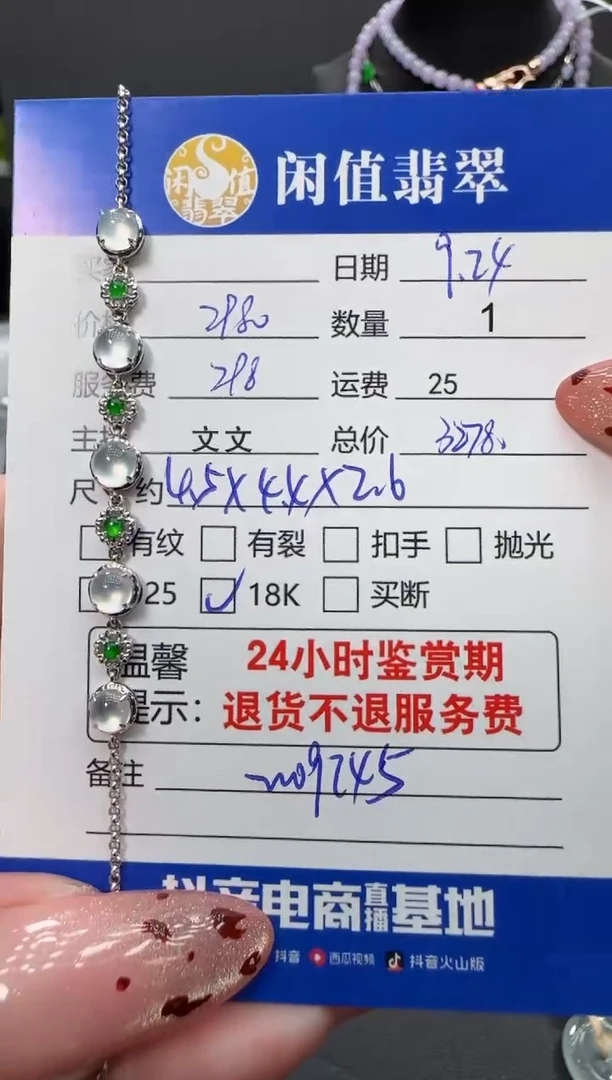 闲值翡翠
闲值翡翠
日期 9.24
价格 2980 数量 1
服务费 298 运费 25
主播 文文 总价 3278.
尺 约 4.5X4.4X2.6
有纹 有裂 扣手 抛光
925 18K 买断
温馨 24小时鉴赏期
提示: 退货不退服务费
备注
抖音电商直播基地
抖音 西瓜视频 抖音火山版